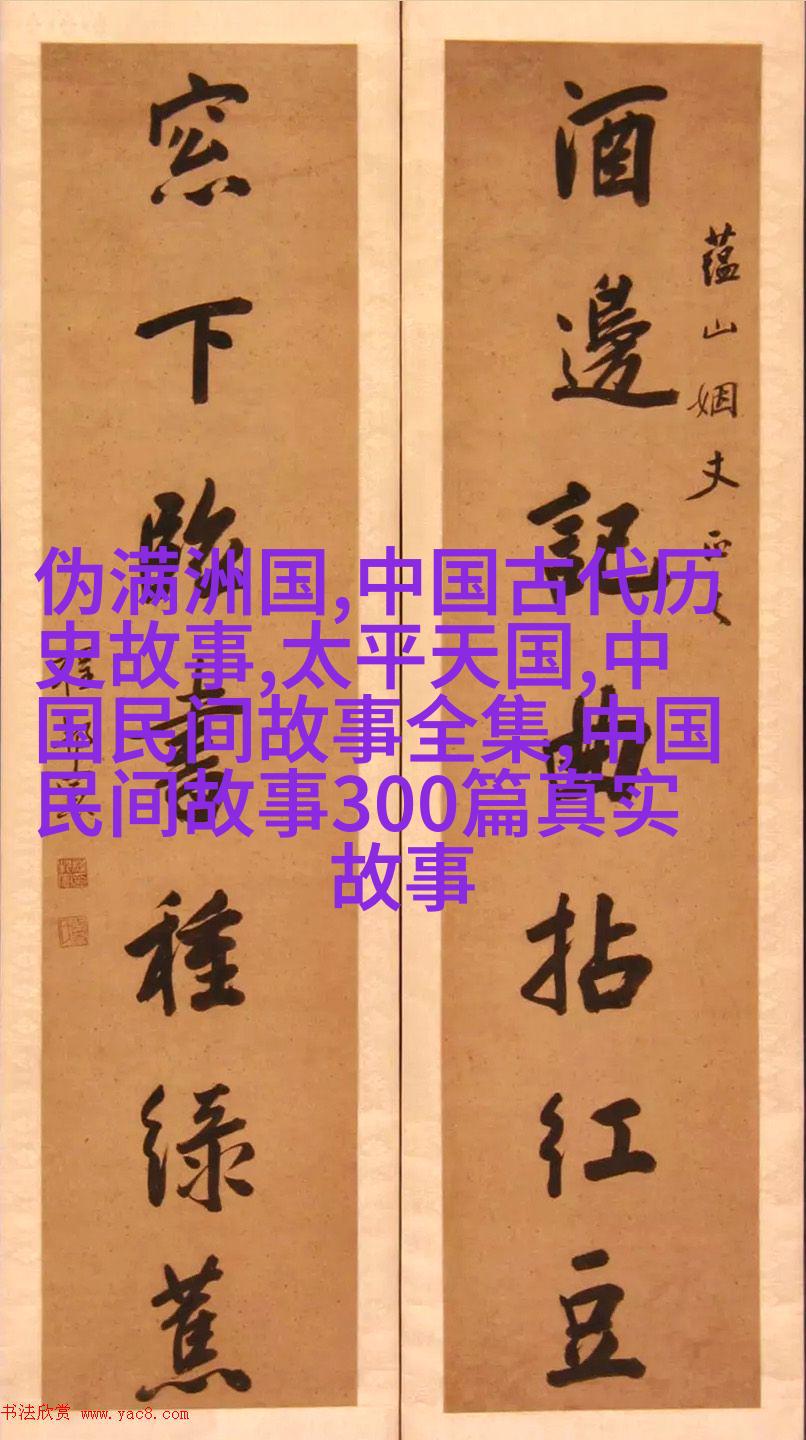 酒邊記曲拈紅豆
蕴山姻丈正之
窓下臨書種緑蕉
伪满洲国,中国古代历
史故事,太平天国,中
国民间故事全集,中国
民间故事300篇真实
故事
书法欣赏 www.yac8.com